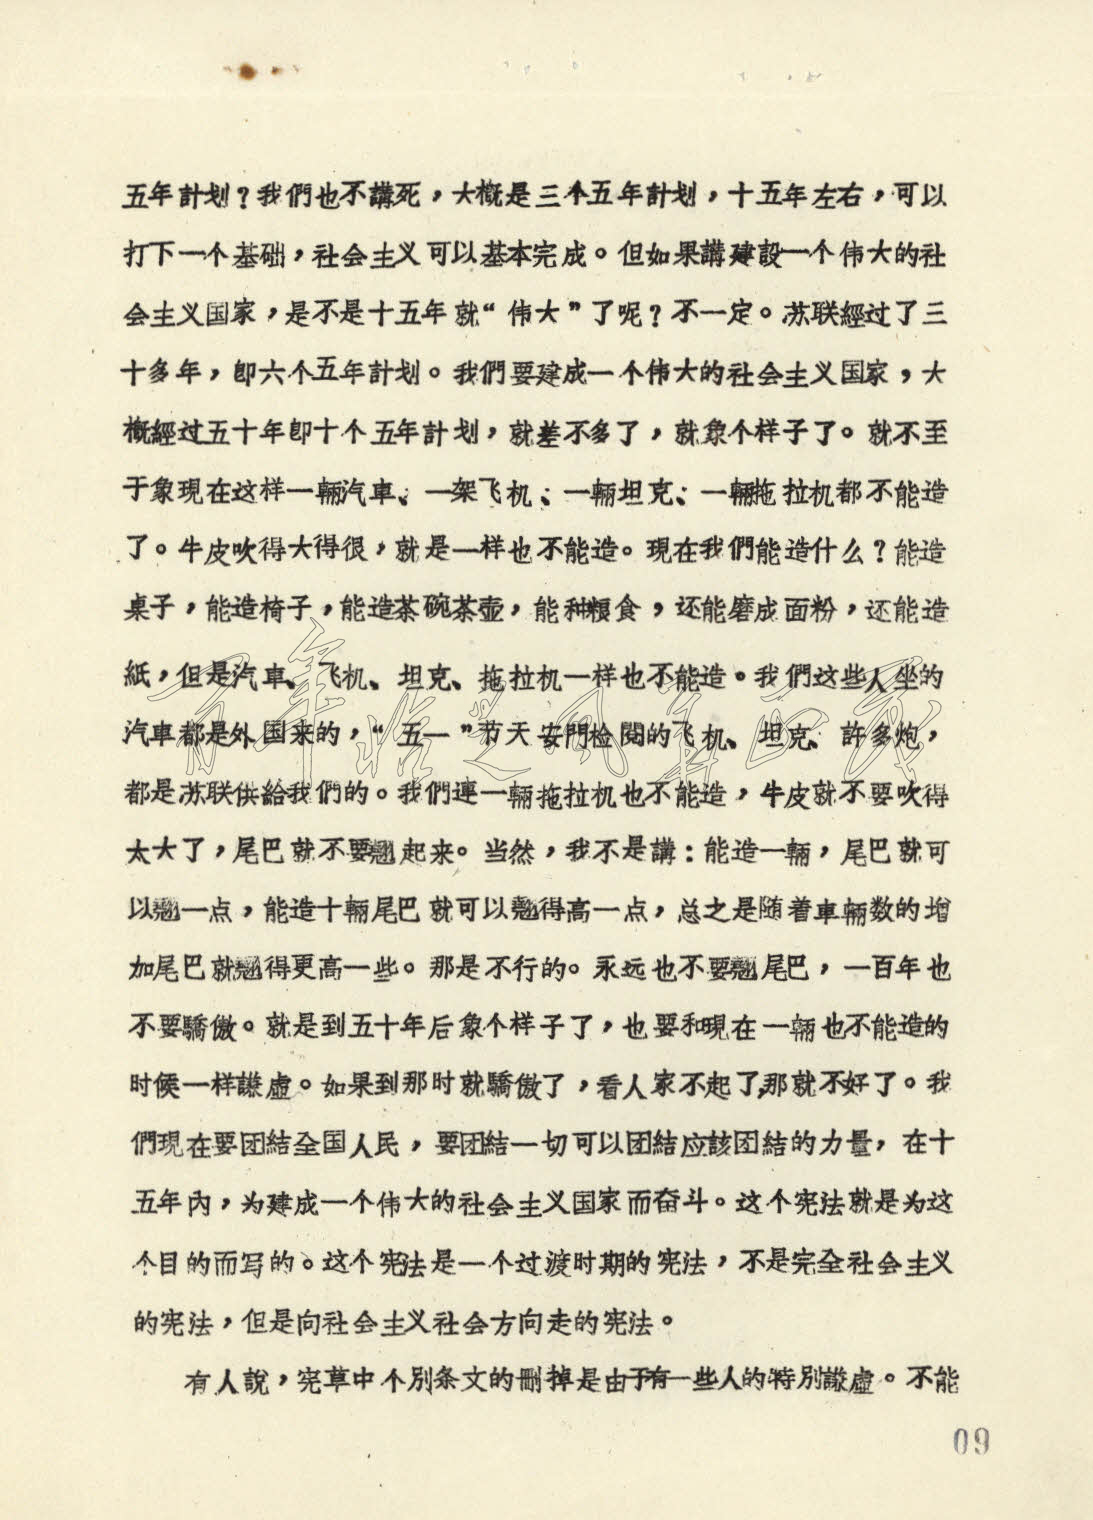 五年計划？我們也不講死，大概是三个五年計划，十五年左右，可以
打下一个基础，社会主义可以基本完成。但如果講建設一个伟大的社
会主义国家，是不是十五年就“伟大”了呢？不一定。苏联經过了三
十多年，卽六个五年計划。我們要建成一个伟大的社会主义国家，大
概經过五十年卽十个五年計划，就差不多了，就象个样子了。就不至
于象現在这样一輛汽車、一架飞机、一輛坦克、一輛拖拉机都不能造
了。牛皮吹得大得很，就是一样也不能造。現在我們能造什么？能造
桌子，能造椅子，能造茶碗茶壶，能种粮食，还能磨成面粉，还能造
紙，但是汽車、飞机、坦克、拖拉机一样也不能造。我們这些人坐的
汽車都是外国来的，“五一”节天安門检閱的飞机、坦克、許多炮，
都是苏联供給我們的。我們連一輛拖拉机也不能造，牛皮就不要吹得
太大了，尾巴就不要翹起来。当然，我不是講：能造一輛，尾巴就可
以翹一点，能造十輛尾巴就可以翹得高一点，总之是随着車輛数的增
加尾巴就翹得更高一些。那是不行的。永远也不要翹尾巴，一百年也
不要驕傲。就是到五十年后象个样子了，也要和現在一輛也不能造的
时候一样謙虛。如果到那时就驕傲了，看人家不起了，那就不好了。我
們現在要团結全国人民，要团結一切可以团結应該团結的力量，在十
五年內，为建成一个伟大的社会主义国家而奋斗。这个宪法就是为这
个目的而写的。这个宪法是一个过渡时期的宪法，不是完全社会主义
的宪法，但是向社会主义社会方向走的宪法。
有人說，宪草中个別条文的刪掉是由于有一些人的特別謙虛。不能
09